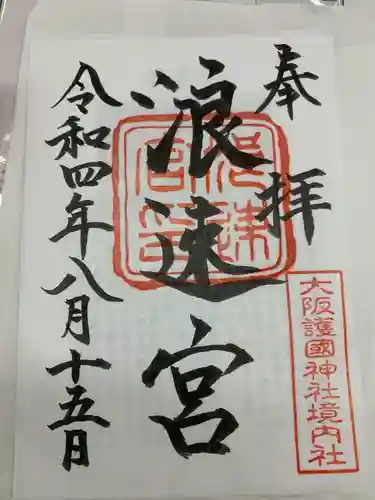 奉拝
大阪護國神社境内社
浪速宮
令和四年八月十五日